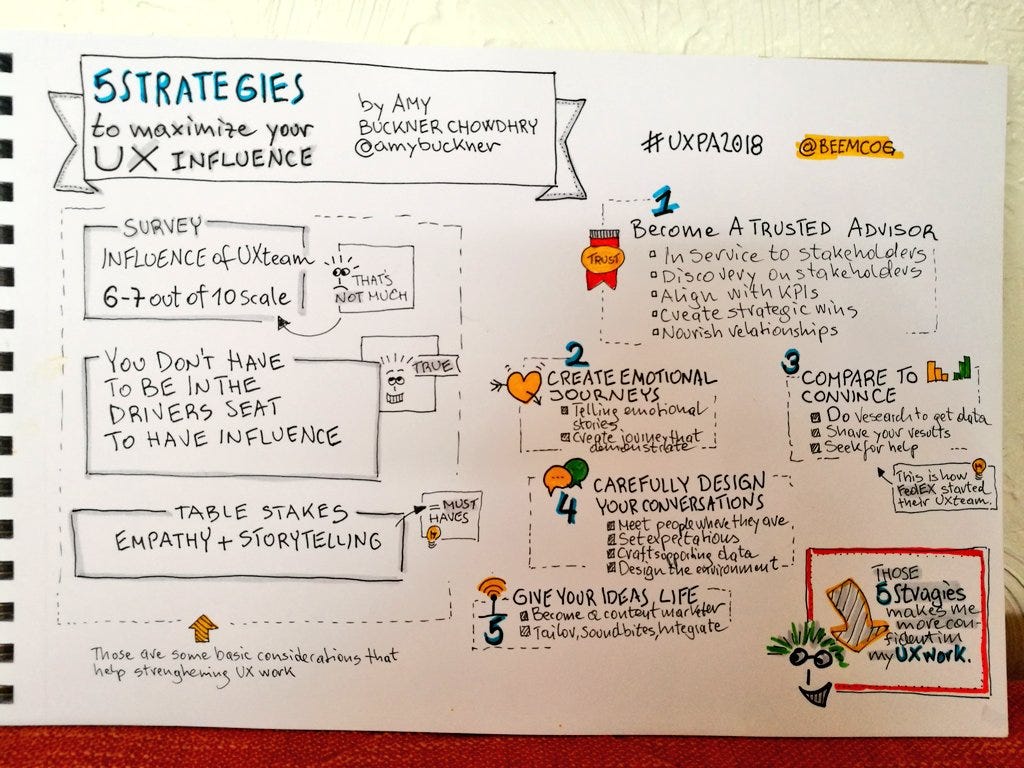 5 STRATEGIES
to maximize your
UX INFLUENCE
by AMY
BUCKNER CHOWDHRY
@amybuckner
#UXPA2018
@BEEMCOG
SURVEY
INFLUENCE of UX team
6-7 out of 10 scale
THAT'S
NOT MUCH
YOU DON'T HAVE
TO BE IN THE
DRIVERS SEAT
TO HAVE INFLUENCE
TRUE
TABLE STAKES
EMPATHY + STORYTELLING
= MUST
HAVES
Those are some basic considerations that
help strenghening UX work
1
TRUST
Become A TRUSTED ADVISOR
In Service to stakeholders
Discovery on stakeholders
Align with KPIs
Create strategic wins
Nourish relationships
2
CREATE EMOTIONAL
JOURNEYS
Telling emotional
stories
Create journey that
demonstrate
3
COMPARE TO
CONVINCE
Do research to get data
Share your results
Seek for help
This is how
FedEX started
their UX team.
4
CAREFULLY DESIGN
YOUR CONVERSATIONS
Meet people where they are,
Set expectations
Craft supporting data
Design the environment
5
GIVE YOUR IDEAS, LIFE
Become a content marketer
Tailor, Soundbites, Integrate
THOSE
5 Stragies
makes me
more con-
fident in
my UX WORK.